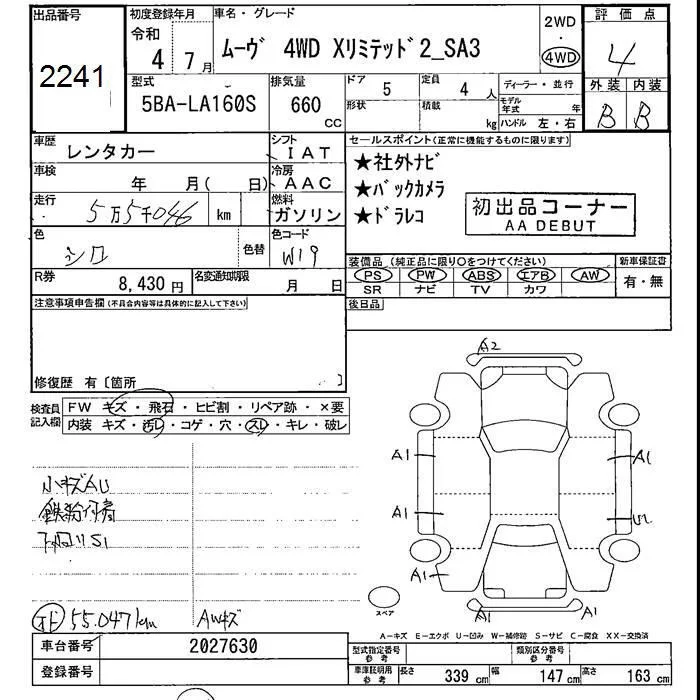 出品番号 初度登録年月 車名・グレード 2WD ・ 4WD 評価点
2241 令和 4年 7月 ムーヴ 4WD Xリミテッド2_SA3 4
型式 排気量 ドア 定員 ディーラー・並行 外装 内装
5BA-LA160S 660 CC 5 4人 モデル年式 年 B B
形状 積載 kg ハンドル 左・右
車歴 レンタカー シフト IAT セールスポイント(正常に機能するものに限ります)
車検 年 月( 日) 冷房 AAC ★社外ナビ
走行 5万5千046 km 燃料 ガソリン ★バックカメラ
★ドラレコ 初出品コーナー
AA DEBUT
色 シロ 色替 色コード W19
装備品(純正品に限り〇をつけてください) 新車保証書
PS PW ABS エアB AW 有・無
SR ナビ TV カワ
R券 8,430円 名変通知期限 月 日
注意事項申告欄(不具合内容等は具体的に記入して下さい) 後日品
修復歴 有〔箇所 〕
検査員記入欄 FW キズ・飛石・ヒビ割・リペア跡・×要
内装 キズ・汚レ・コゲ・穴・スレ・キレ・破レ
A2
A1 A1
A1
A1
A1 A1
小キズAU
鉄粉付着
下回りS1
スペア
55.047km AWキズ
A-キズ E-エクボ U-凹み W-補修跡 S-サビ C-腐食 XX-交換済
車台番号 2027630 型式指定番号 参考 類別区分番号 参考
登録番号 車庫証明用 参考 長さ 339 cm 幅 147 cm 高さ 163 cm